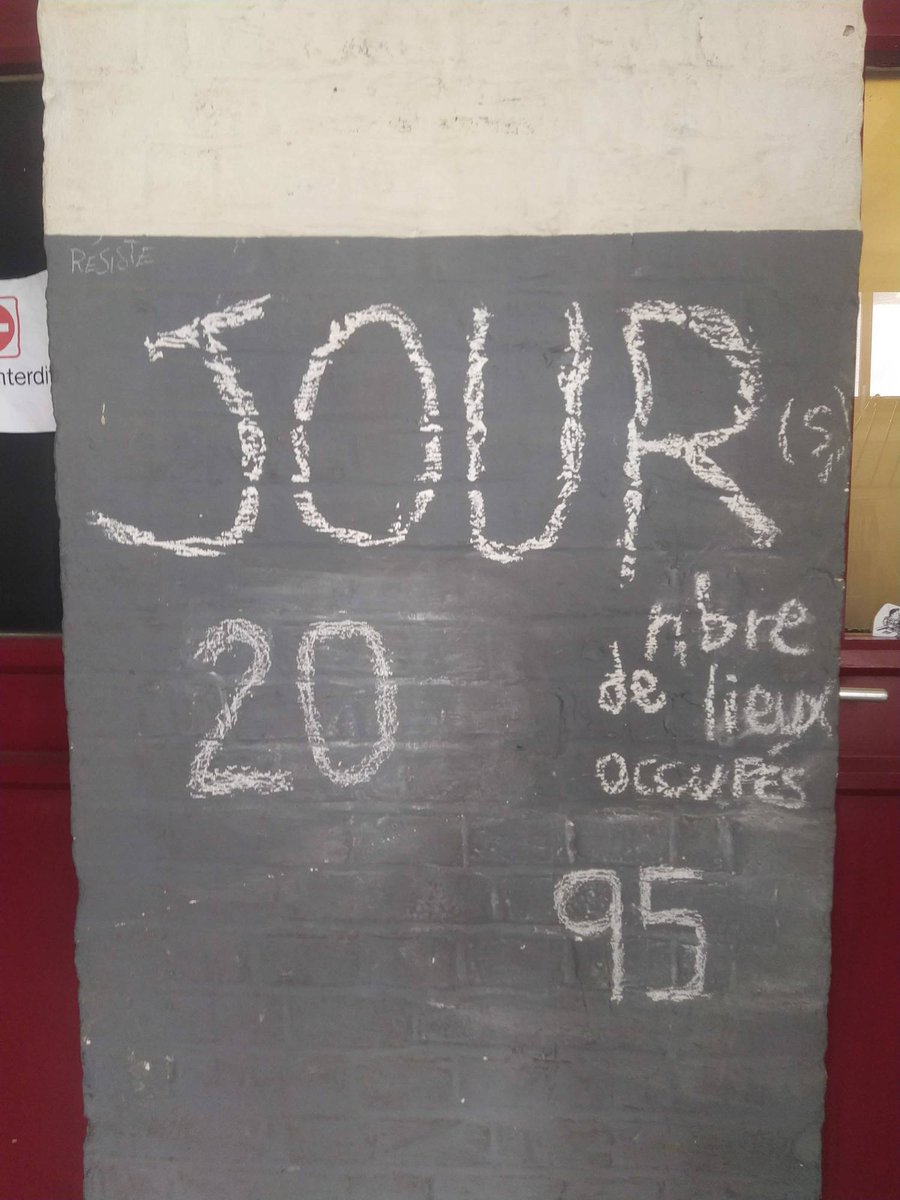 RESISTE
JOUR(s)
20
nbre
de lieux
occupés
95
nterdi